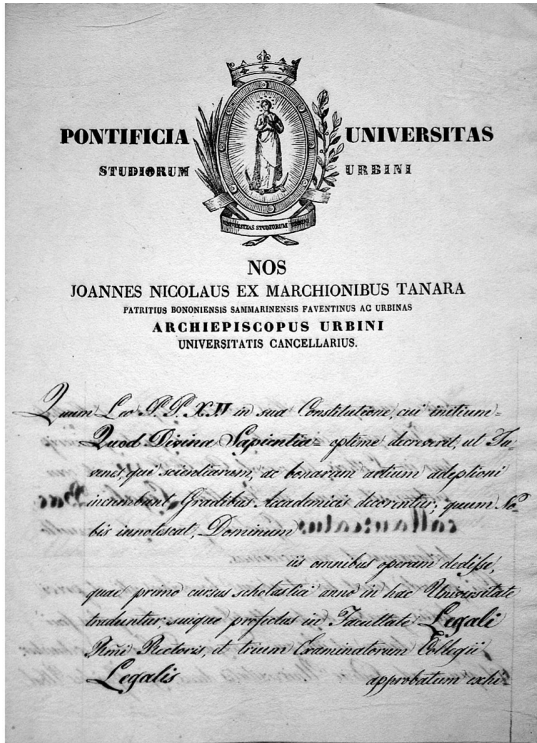 PONTIFICIA UNIVERSITAS
STUDIORUM URBINI
UNIVERSITAS STUDIORUM URBINI
NOS
JOANNES NICOLAUS EX MARCHIONIBUS TANARA
PATRITIUS BONONIENSIS SAMMARINENSIS FAVENTINUS AC URBINAS
ARCHIEPISCOPUS URBINI
UNIVERSITATIS CANCELLARIUS.
Quum Leo P. P. XII in sua Constitutione, cui initium=
Quod Divina Sapientia= optime decreverit, ut Ju-
venes, qui scientiarum, ac bonarum artium adeptioni
incumbunt, Gradibus Academicis decorentur, quum No-
bis innotescat, Dominum
iis omnibus operam dedisse,
quae primo cursus scholastici anno in hac Universitate
traduntur suique profectus in Facultate Legali
Rmi Rectoris, et trium Examinatorum Collegii
Legalis approbatum exhi-